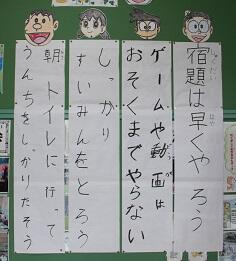 宿題は早くやろう
ゲームや動画は
おそくまでやらない
しっかり
すいみんをとろう
朝 トイレに行って
うんちをしっかりだそう